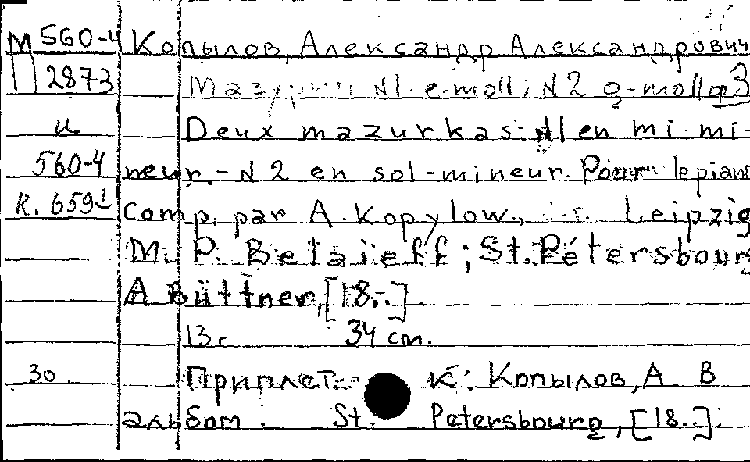 М 560-4 Копылов, Александр Александрович
2873 Мазурки №1 e-moll; №2 g-moll ф3
и Deux mazurkas: №1 en mi mi-
560-4 neur. - №2 en sol-mineur. Pour le piano
К. 659 Comp. par A. Kopylow. Leipzig
M. P. Belaieff; St. Pétersbourg
A Büttner, [18..]
13 с 34 cm.
30 Приплет. к: Копылов, А. В
альбом. St. Petersbourg, [18..].